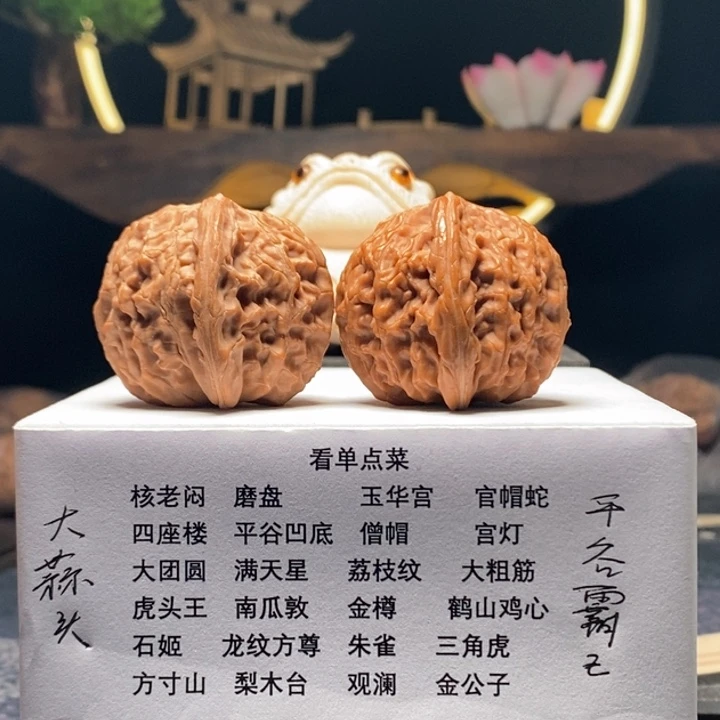 看单点菜
核老闷 磨盘 玉华宫 官帽蛇
四座楼 平谷凹底 僧帽 宫灯
大团圆 满天星 荔枝纹 大粗筋
虎头王 南瓜敦 金樽 鹤山鸡心
石姬 龙纹方尊 朱雀 三角虎
方寸山 梨木台 观澜 金公子
大蒜头
平谷霸王